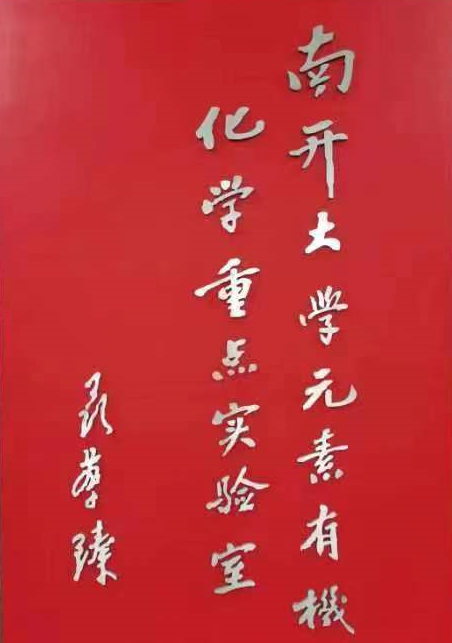 南开大学元素有機
化学重点实验室
聂荣臻